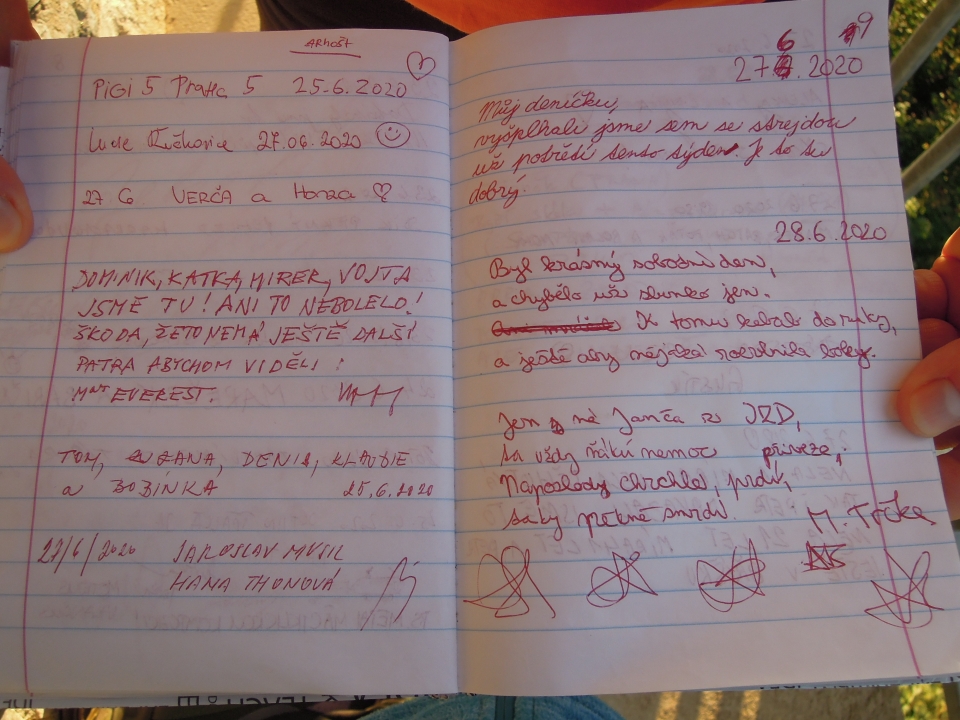 ARNOŠT
PIGI 5 Praha 5 25.6.2020
27.06.2020
27 6 VERČA a Honza
DOMINIK, KATKA, MIREK, VOJTA
JSME TU! ANI TO NEBOLELO!
ŠKODA, ŽETO NEMÁ JEŠTĚ DALŠÍ
PATRA ABYCHOM VIDĚLI:
MNT EVEREST.
TOM, ZUZANA, DENIS, KLAUDIE
a BOBINKA 25.6.2020
27/6/2020 JAROSLAV MUSIL
HANA THONOVÁ
19
27.6.2020
Můj deníčku,
vyšplhali jsme sem se strejdou
už potřetí tento týden. Je to tu
dobrý.
28.6.2020
Byl krásný sobotní den,
a chybělo už slunko jen.
K tomu kabát do ruky,
a ještě aby nějaká rozbila
Jen ná Jamča z JZD,
ta vždy ňákú nemoc přiveze,
Naposledy chrchlá, prdí,
taky pěkně smrdí.
M. Trčka